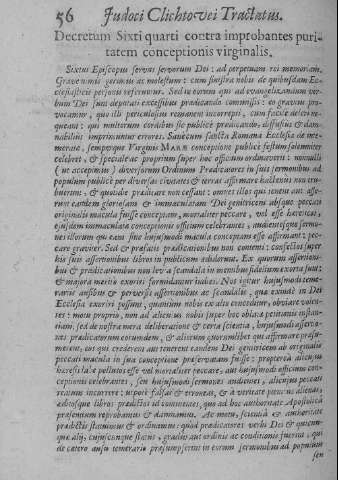 56 Judoci Clichtovei Tractatus.
Decretum Sixti quarti contra improbantes puri-
tatem conceptionis virginalis.
Sixtus Episcopus servus servorum Dei: ad perpetuam rei memoriam.
Grave nimis gerimus ac molestum: cum sinistra nobis de quibusdam Ec-
clesiasticis personis referuntur. Sed in eorum qui ad evangelizandum ver-
bum Dei sunt deputati excessibus prædicando commissis: eo gravius pro-
vocamur, quo illi periculosius remanent incorrepti, cum facile deleri ne-
queant: qui multorum cordibus sic publicè prædicando, diffusius & dam-
nabilius imprimuntur errores. Sanè cum sancta Romana Ecclesia de inte-
meratæ, semperque Virginis MARIÆ conceptione publicè festum solemniter
celebret, & speciale ac proprium super hoc officium ordinaverit: nonnulli
(ut accepimus) diversorum Ordinum Prædicatores in suis sermonibus ad
populum publicè per diversas civitates & terras affirmare hactenus non eru-
buerunt: & quotidie prædicare non cessant: omnes illos qui tenent aut asse-
runt eandem gloriosam & immaculatam Dei genitricem absque peccati
originalis macula fuisse conceptam, mortaliter peccare, vel esse hæreticos,
ejusdem immaculatæ conceptionis officium celebrantes, audientesque sermo-
nes illorum qui eam sine hujusmodi macula conceptam esse affirmant: pec-
care graviter. Sed & præfatis prædicationibus non contenti: confectos super
his suis assertionibus libros in publicum ediderunt. Ex quorum assertioni-
bus & prædicationibus non levia scandala in mentibus fidelium exorta sunt:
& majora meritò exoriri formidantur indies. Nos igitur hujusmodi teme-
rariis ausibus & perversis assertionibus ac scandalis, quæ exinde in Dei
Ecclesia exoriri possunt, quantum nobis ex alto conceditur, obviare volen-
tes: motu proprio, non ad alicujus nobis super hoc oblatæ petitionis instan-
tiam, sed de nostra mera deliberatione & certa scientia, hujusmodi assertio-
nes prædicatorum eorumdem, & aliorum quorumlibet qui affirmare præsu-
merent, eos qui crederent aut tenerent eandem Dei genitricem ab originalis
peccati macula in sua conceptione præservatam fuisse: propterea alicujus
hæresis labe pollutos esse vel mortaliter peccare, aut hujusmodi officium con-
ceptionis celebrantes, seu hujusmodi sermones audientes, alicujus peccati
reatum incurrere: utpote falsas & erroneas, & à veritate penitus alienas,
editosque libros prædictos id continentes, quo ad hoc authoritate Apostolica
præsentium reprobamus & damnamus. Ac motu, scientia & authoritate
prædictis statuimus & ordinamus: quòd prædicatores verbi Dei & quicum-
que alij, cujuscunque status, gradus aut ordinis ac conditionis fuerint, qui
de cætero ausu temerario præsumpserint in eorum sermonibus ad populum
seu